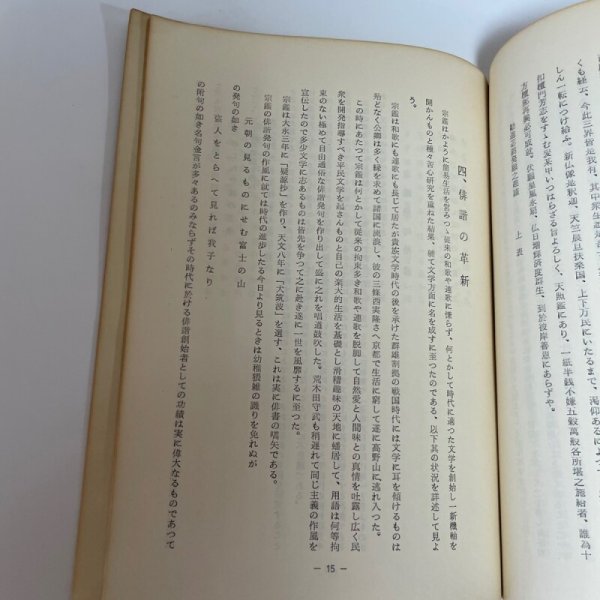 くも経云、今此三界皆是我有、其中衆生
しん一転につけ給ふ。新仏像是釈迦、天竺辰旦扶桑国、上下万民にいたるまで、渇仰あるによつて
和樫門芳志をすゝむ炭某甲いつはらざる旨よろしく、天照鑑にあり、一紙半銭不嫌五穀萬般各所堪之施給者、誰為十
方檀那再興必可成就、伏願皇風永扇、仏日増輝済度群生、到於彼岸善恵にあらずや。
上表
四、俳諧の革新
宗鑑はかように簡易生活を営みつゝ従来の和歌や連歌に慊らず、何とかして時代に適つた文学を創始し一新機軸を
開かんものと種々苦心研究を重ねた結果、軈て文学方面に名を成すに至つたのである、以下其の状況を詳述して見よ
う。
宗鑑は和歌にも連歌にも長じて居たが貴族文学時代の後を承けた群雄割拠の戦国時代には文学に耳を傾けるものは
殆どなく公卿は多く縁を求めて諸国に流浪し、彼の三條西実隆さへ京都で生活に窮して遂に高野山に逃れ入つた。
この時にあたつて宗鑑は何とかして従来の拘束多き和歌や連歌を脱脚して自然愛と人間味との真情を吐露し広く民
衆を開発指導すべき平民文学を起さんものと自己の楽天的生活を基礎とし滑稽趣味の天地に蟠居して、用語は何等拘
束のない極めて自由通俗な俳諧発句を作り出して盛に之れを唱道鼓吹した。荒木田守武も稍遅れて同じ主義の作風を
宣伝したので多少文学に志あるものは皆先を争つて之に赴き遂に一世を風靡するに至つた。
宗鑑は大永三年に「疑源抄」を作り、天文八年に「犬筑波」を選す、これは実に俳書の嚆矢である。
宗鑑の俳諧発句の作風に就ては時代の進歩したる今日より見るときは幼稚猥雑の譏りを免れぬが
元朝の見るものにせむ富士の山
の発句の如き
盗人をとらへて見れば我子なり
の附句の如き名句金言が多々あるのみならずその時代に於ける俳諧創始者としての功績は実に偉大なるものであつて
— 15 —